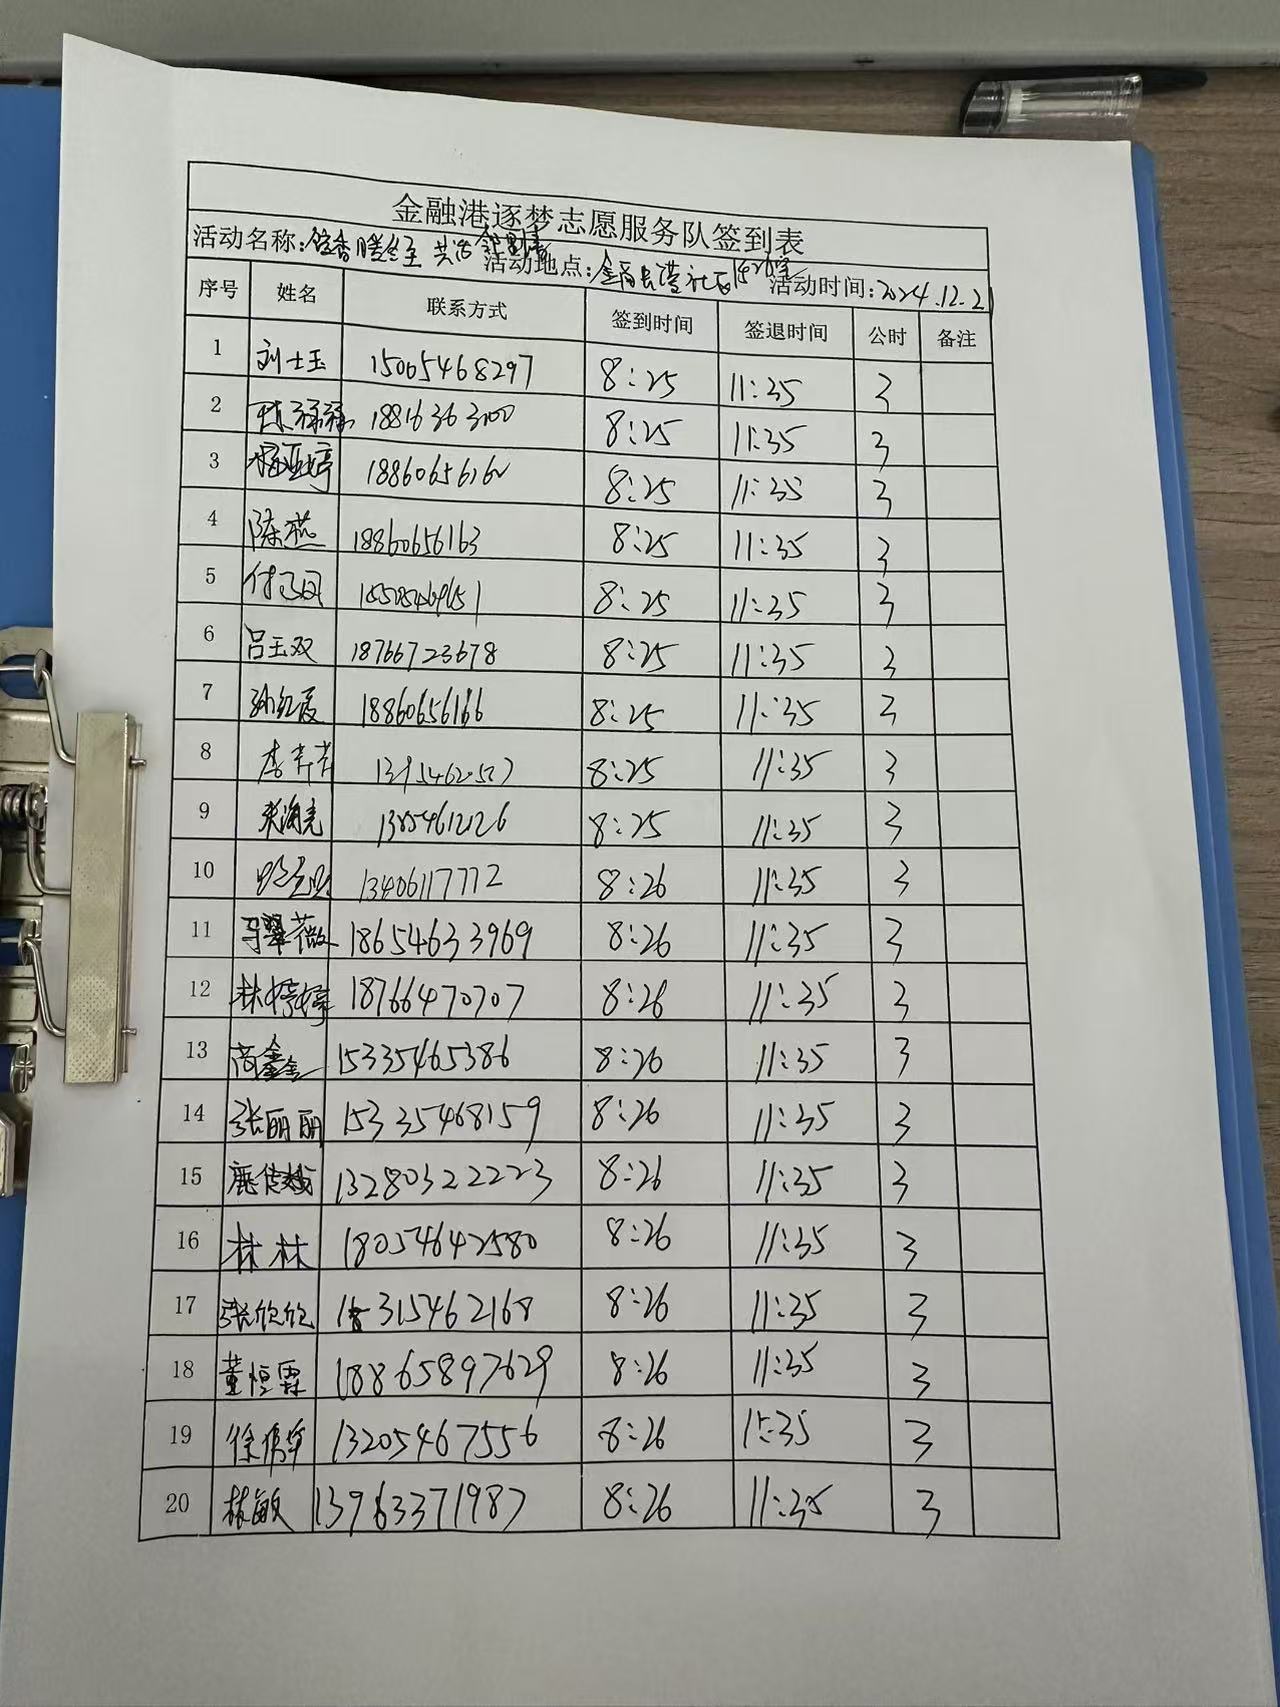 金融港逐梦志愿服务队签到表
活动名称:饺香暖冬至 共话邻里情 活动地点:金融港社区 活动时间:2024.12.21
序号 姓名 联系方式 签到时间 签退时间 公时 备注
1 刘士玉 15005468297 8:25 11:35 3
2 18816363100 8:25 11:35 3
3 杨亚婷 18860656162 8:25 11:35 3
4 陈燕 18860656163 8:25 11:35 3
5 8:25 11:35 3
6 吕玉双 18766723678 8:25 11:35 3
7 孙红霞 18860656166 8:25 11:35 3
8 李芹芹 8:25 11:35 3
9 张海亮 13854612126 8:25 11:35 3
10 13406117772 8:26 11:35 3
11 马翠薇 18654633969 8:26 11:35 3
12 林婷婷 18766470707 8:26 11:35 3
13 商鑫鑫 15335465386 8:26 11:35 3
14 张丽丽 15335468159 8:26 11:35 3
15 13280322223 8:26 11:35 3
16 林林 18054642580 8:26 11:35 3
17 18315462168 8:26 11:35 3
18 董恒霖 18865897629 8:26 11:35 3
19 徐倩华 13205467556 8:26 11:35 3
20 林敏 13963371987 8:26 11:35 3